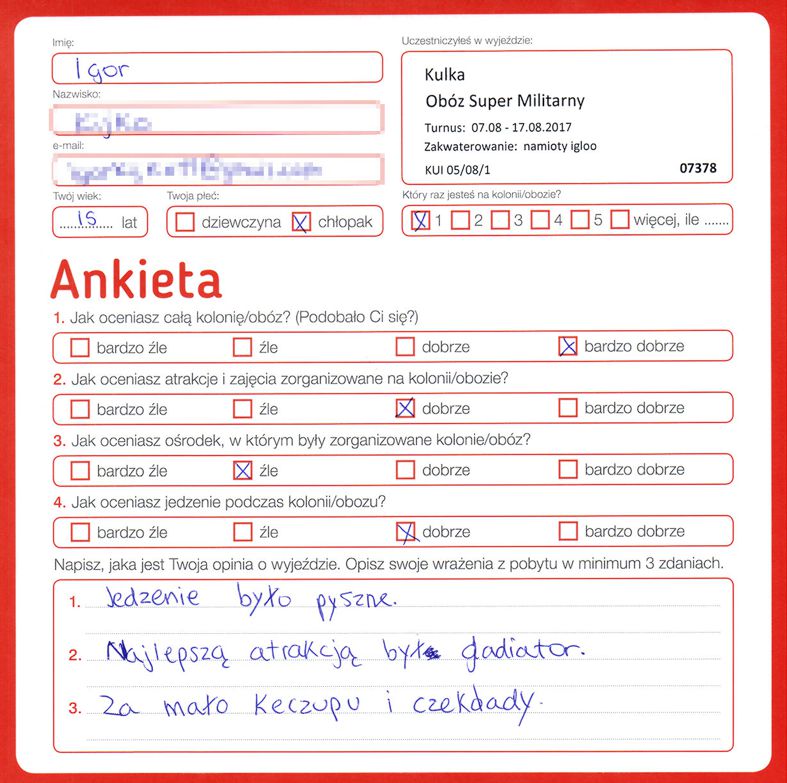 Imię:
Igor
Uczestniczyłeś w wyjeździe:
Kulka
Obóz Super Militarny
Turnus: 07.08 - 17.08.2017
Zakwaterowanie: namioty igloo
KUI 05/08/1 07378
Nazwisko:
e-mail:
Twój wiek:
15 lat
Twoja płeć:
dziewczyna chłopak
Który raz jesteś na kolonii/obozie?
1 2 3 4 5 więcej, ile .......
Ankieta
1. Jak oceniasz całą kolonię/obóz? (Podobało Ci się?)
bardzo źle źle dobrze bardzo dobrze
2. Jak oceniasz atrakcje i zajęcia zorganizowane na kolonii/obozie?
bardzo źle źle dobrze bardzo dobrze
3. Jak oceniasz ośrodek, w którym były zorganizowane kolonie/obóz?
bardzo źle źle dobrze bardzo dobrze
4. Jak oceniasz jedzenie podczas kolonii/obozu?
bardzo źle źle dobrze bardzo dobrze
Napisz, jaka jest Twoja opinia o wyjeździe. Opisz swoje wrażenia z pobytu w minimum 3 zdaniach.
1. Jedzenie było pyszne.
2. Najlepszą atrakcją był gladiator.
3. Za mało keczupu i czekolady.